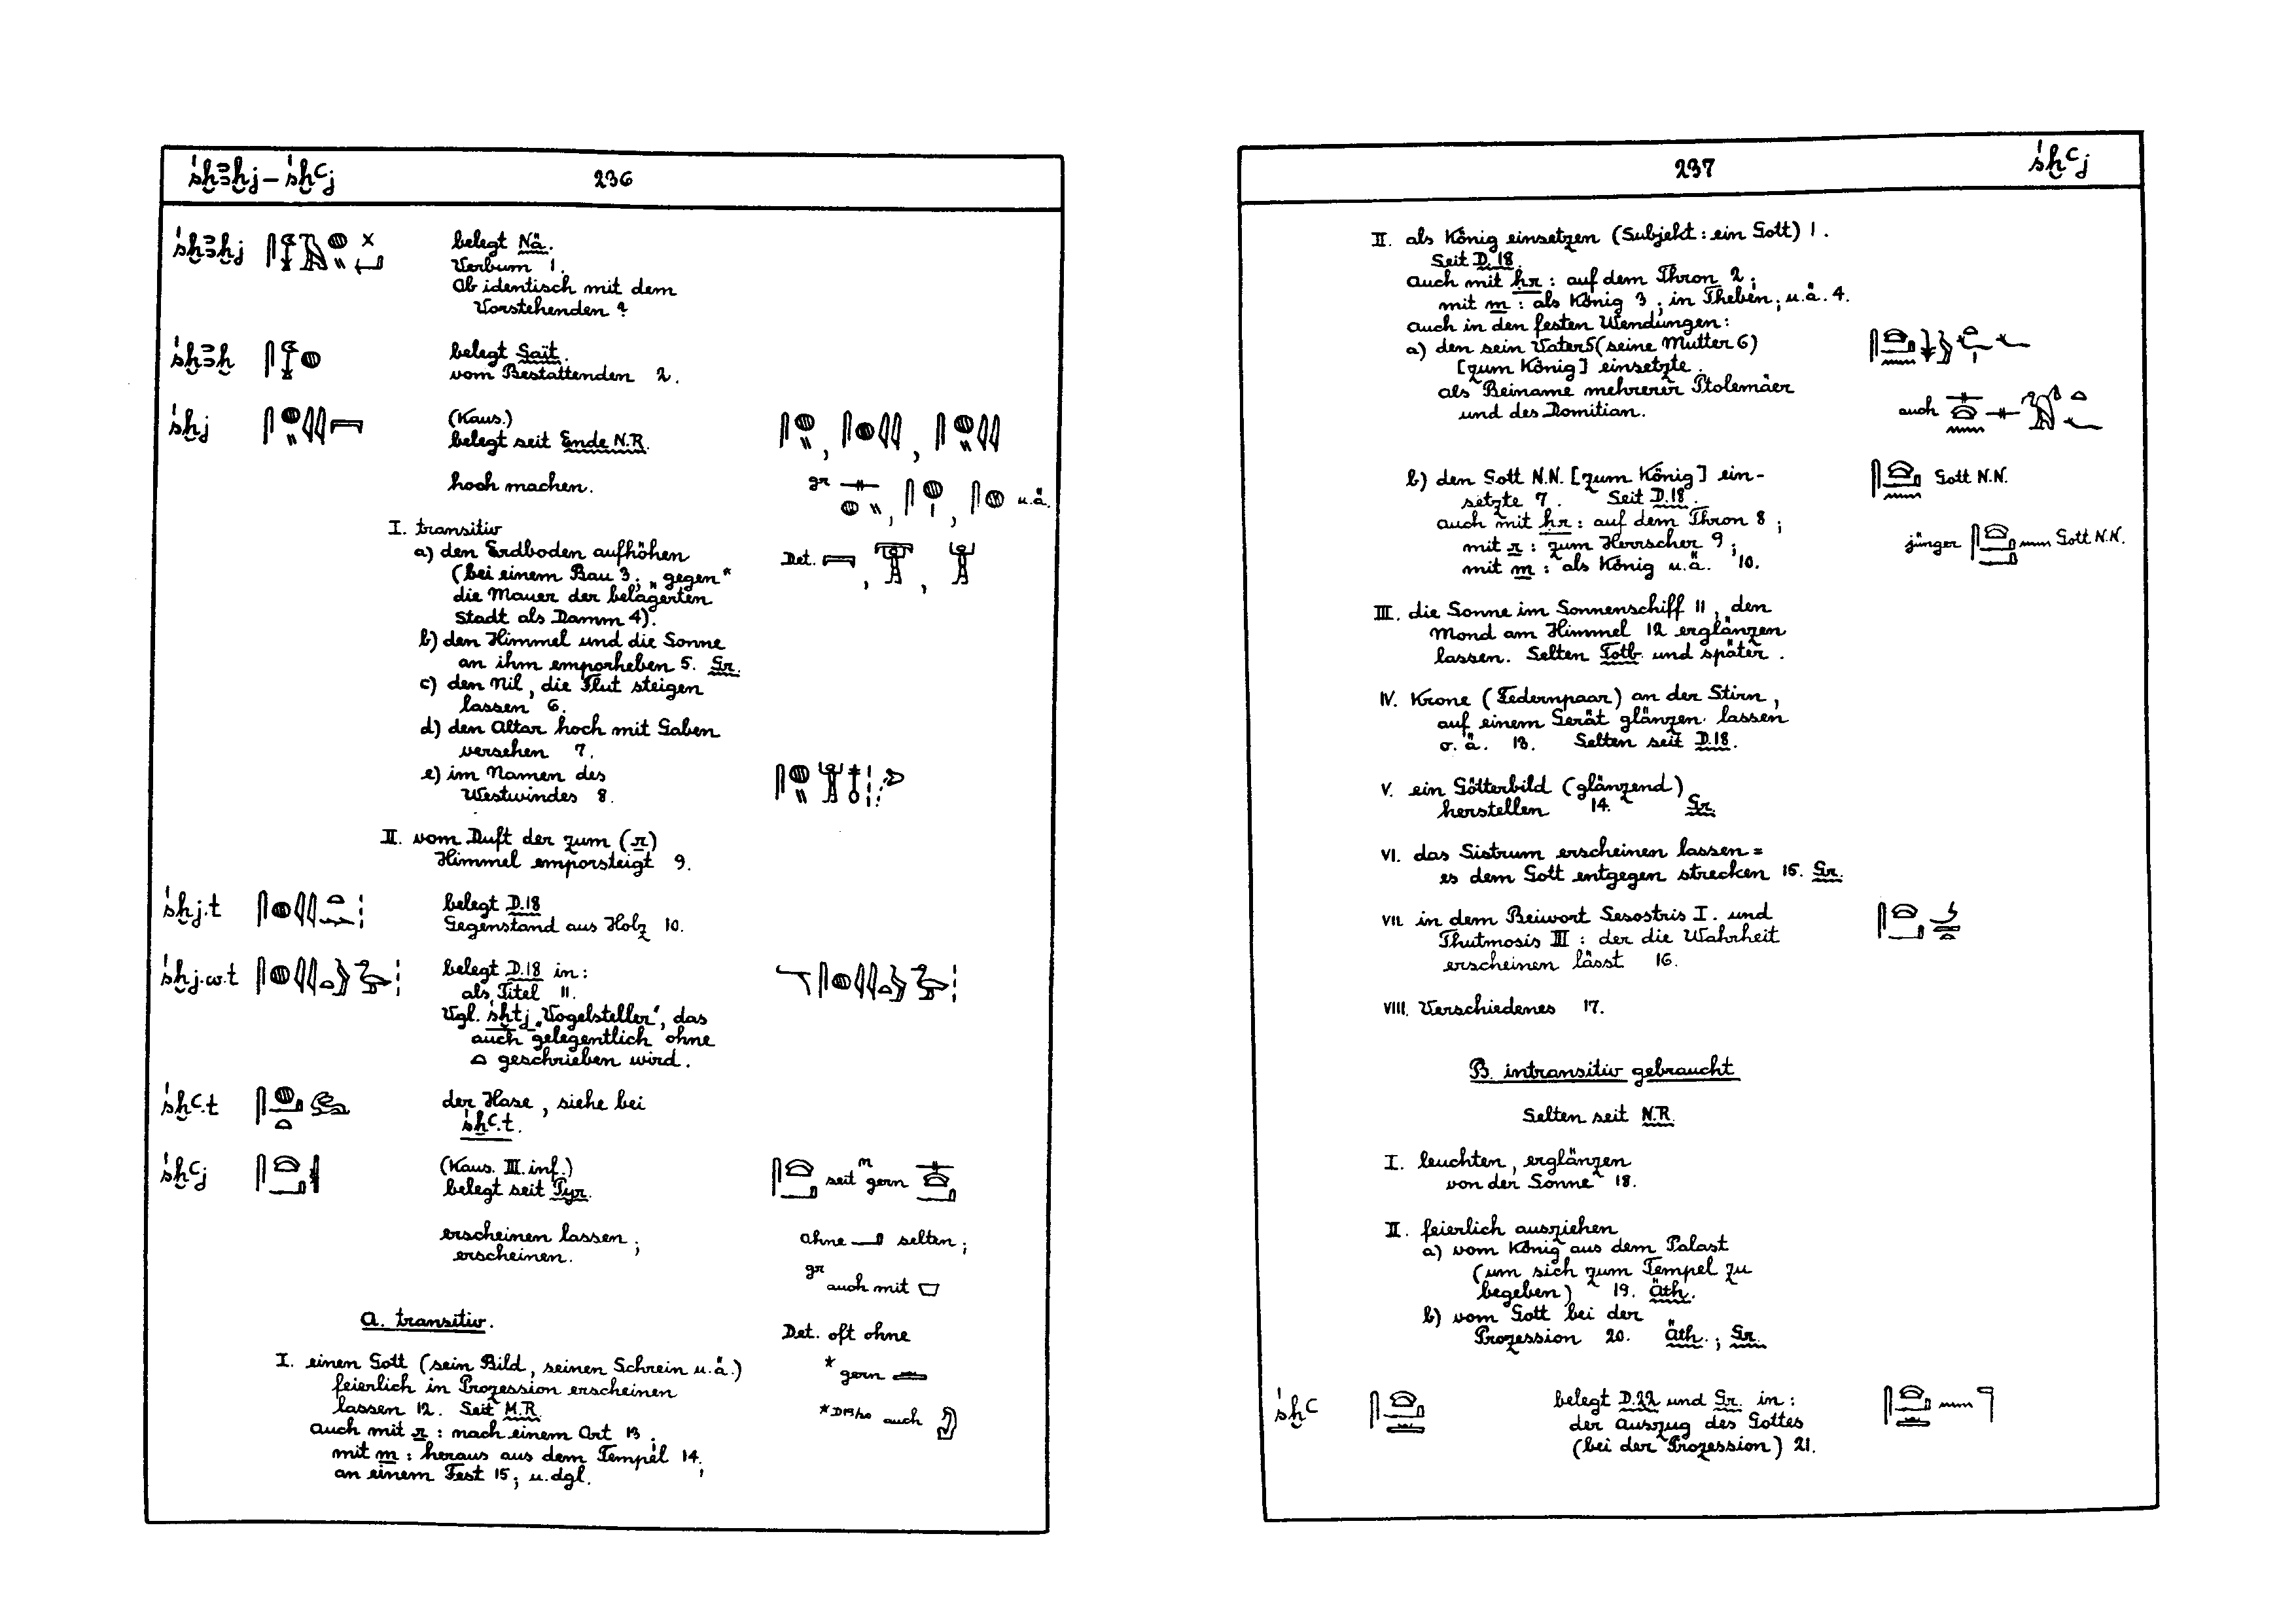 śḫꜣḫj – śḫꜥj
236
śḫꜣḫj
belegt Nä.
Verbum 1.
Ob identisch mit dem
Vorstehenden ?
śḫꜣḫ
belegt Sait.
vom Bestattenden 2.
śḫj
(Kaus.)
belegt seit Ende N.R.
hoch machen.
gr
u.ä.
I. transitiv
a) den Erdboden aufhöhen
(bei einem Bau 3; „gegen“
die Mauer der belagerten
Stadt als Damm 4).
Det.
b) den Himmel und die Sonne
an ihm emporheben 5. Gr.
c) den Nil, die Flut steigen
lassen 6.
d) den Altar hoch mit Gaben
versehen 7.
e) im Namen des
Westwindes 8.
II. vom Duft der zum (r)
Himmel emporsteigt 9.
śḫj.t
belegt D.18
Gegenstand aus Holz 10.
śḫj.w.t
belegt D.18 in:
als Titel 11.
Vgl. śḫtj „Vogelsteller“, das
auch gelegentlich ohne
geschrieben wird.
śḫꜥ.t
der Hase, siehe bei
śḫꜥ.t.
śḫꜥj
(Kaus. III. inf.)
belegt seit Pyr.
seit n gern
erscheinen lassen;
erscheinen.
ohne selten;
gr auch mit
A. transitiv.
Det. oft ohne
* gern
* D19/20 auch
I. einen Gott (sein Bild, seinen Schrein u.ä.)
feierlich in Prozession erscheinen
lassen 12. Seit M.R.
auch mit r : nach einem Ort 13.
mit m : heraus aus dem Tempel 14;
an einem Fest 15; u.dgl.
237
śḫꜥj
II. als König einsetzen (Subjekt : ein Gott) 1.
Seit D.18.
auch mit ḥr : auf dem Thron 2;
mit m : als König 3; in Theben; u.ä. 4.
auch in den festen Wendungen:
a) den sein Vater 5 (seine Mutter 6)
[zum König] einsetzte.
als Beiname mehrerer Ptolemäer
und des Domitian.
auch
b) den Gott N.N. [zum König] ein-
setzte 7. Seit D.18.
auch mit ḥr : auf dem Thron 8;
mit r : zum Herrscher 9;
mit m : als König u.ä. 10.
Gott N.N.
jünger Gott N.N.
III. die Sonne im Sonnenschiff 11, den
Mond am Himmel 12 erglänzen
lassen. Selten Totb. und später.
IV. Krone (Federnpaar) an der Stirn,
auf einem Gerät glänzen lassen
o.ä. 13. Selten seit D.18.
V. ein Götterbild (glänzend)
herstellen 14. Gr.
VI. das Sistrum erscheinen lassen =
es dem Gott entgegen strecken 15. Gr.
VII. in dem Beiwort Sesostris I. und
Thutmosis III : der die Wahrheit
erscheinen lässt 16.
VIII. Verschiedenes 17.
B. intransitiv gebraucht
Selten seit N.R.
I. leuchten, erglänzen
von der Sonne 18.
II. feierlich ausziehen
a) vom König aus dem Palast
(um sich zum Tempel zu
begeben) 19. Äth.
b) vom Gott bei der
Prozession 20. Äth.; Gr.
śḫꜥ
belegt D.22 und Gr. in :
der Auszug des Gottes
(bei der Prozession) 21.